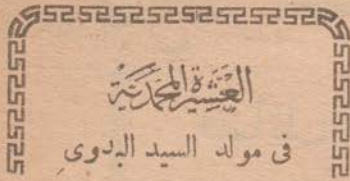 العشيرة المحمدية
فى مولد السيد البدوى